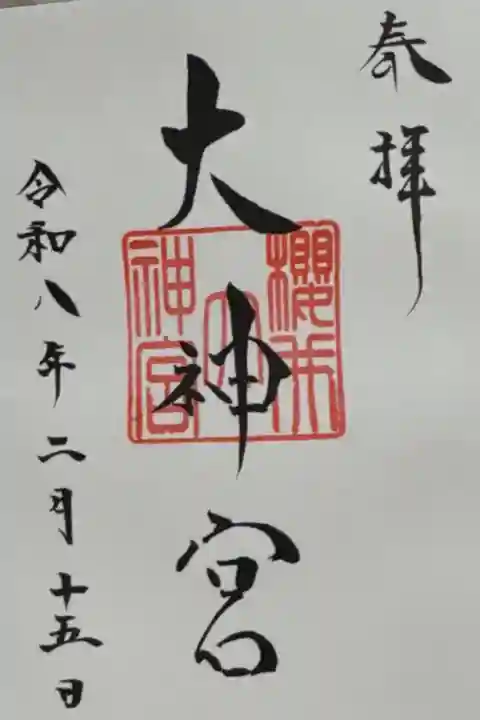 奉拝
大神宮
櫻木大神宮
令和八年二月十五日